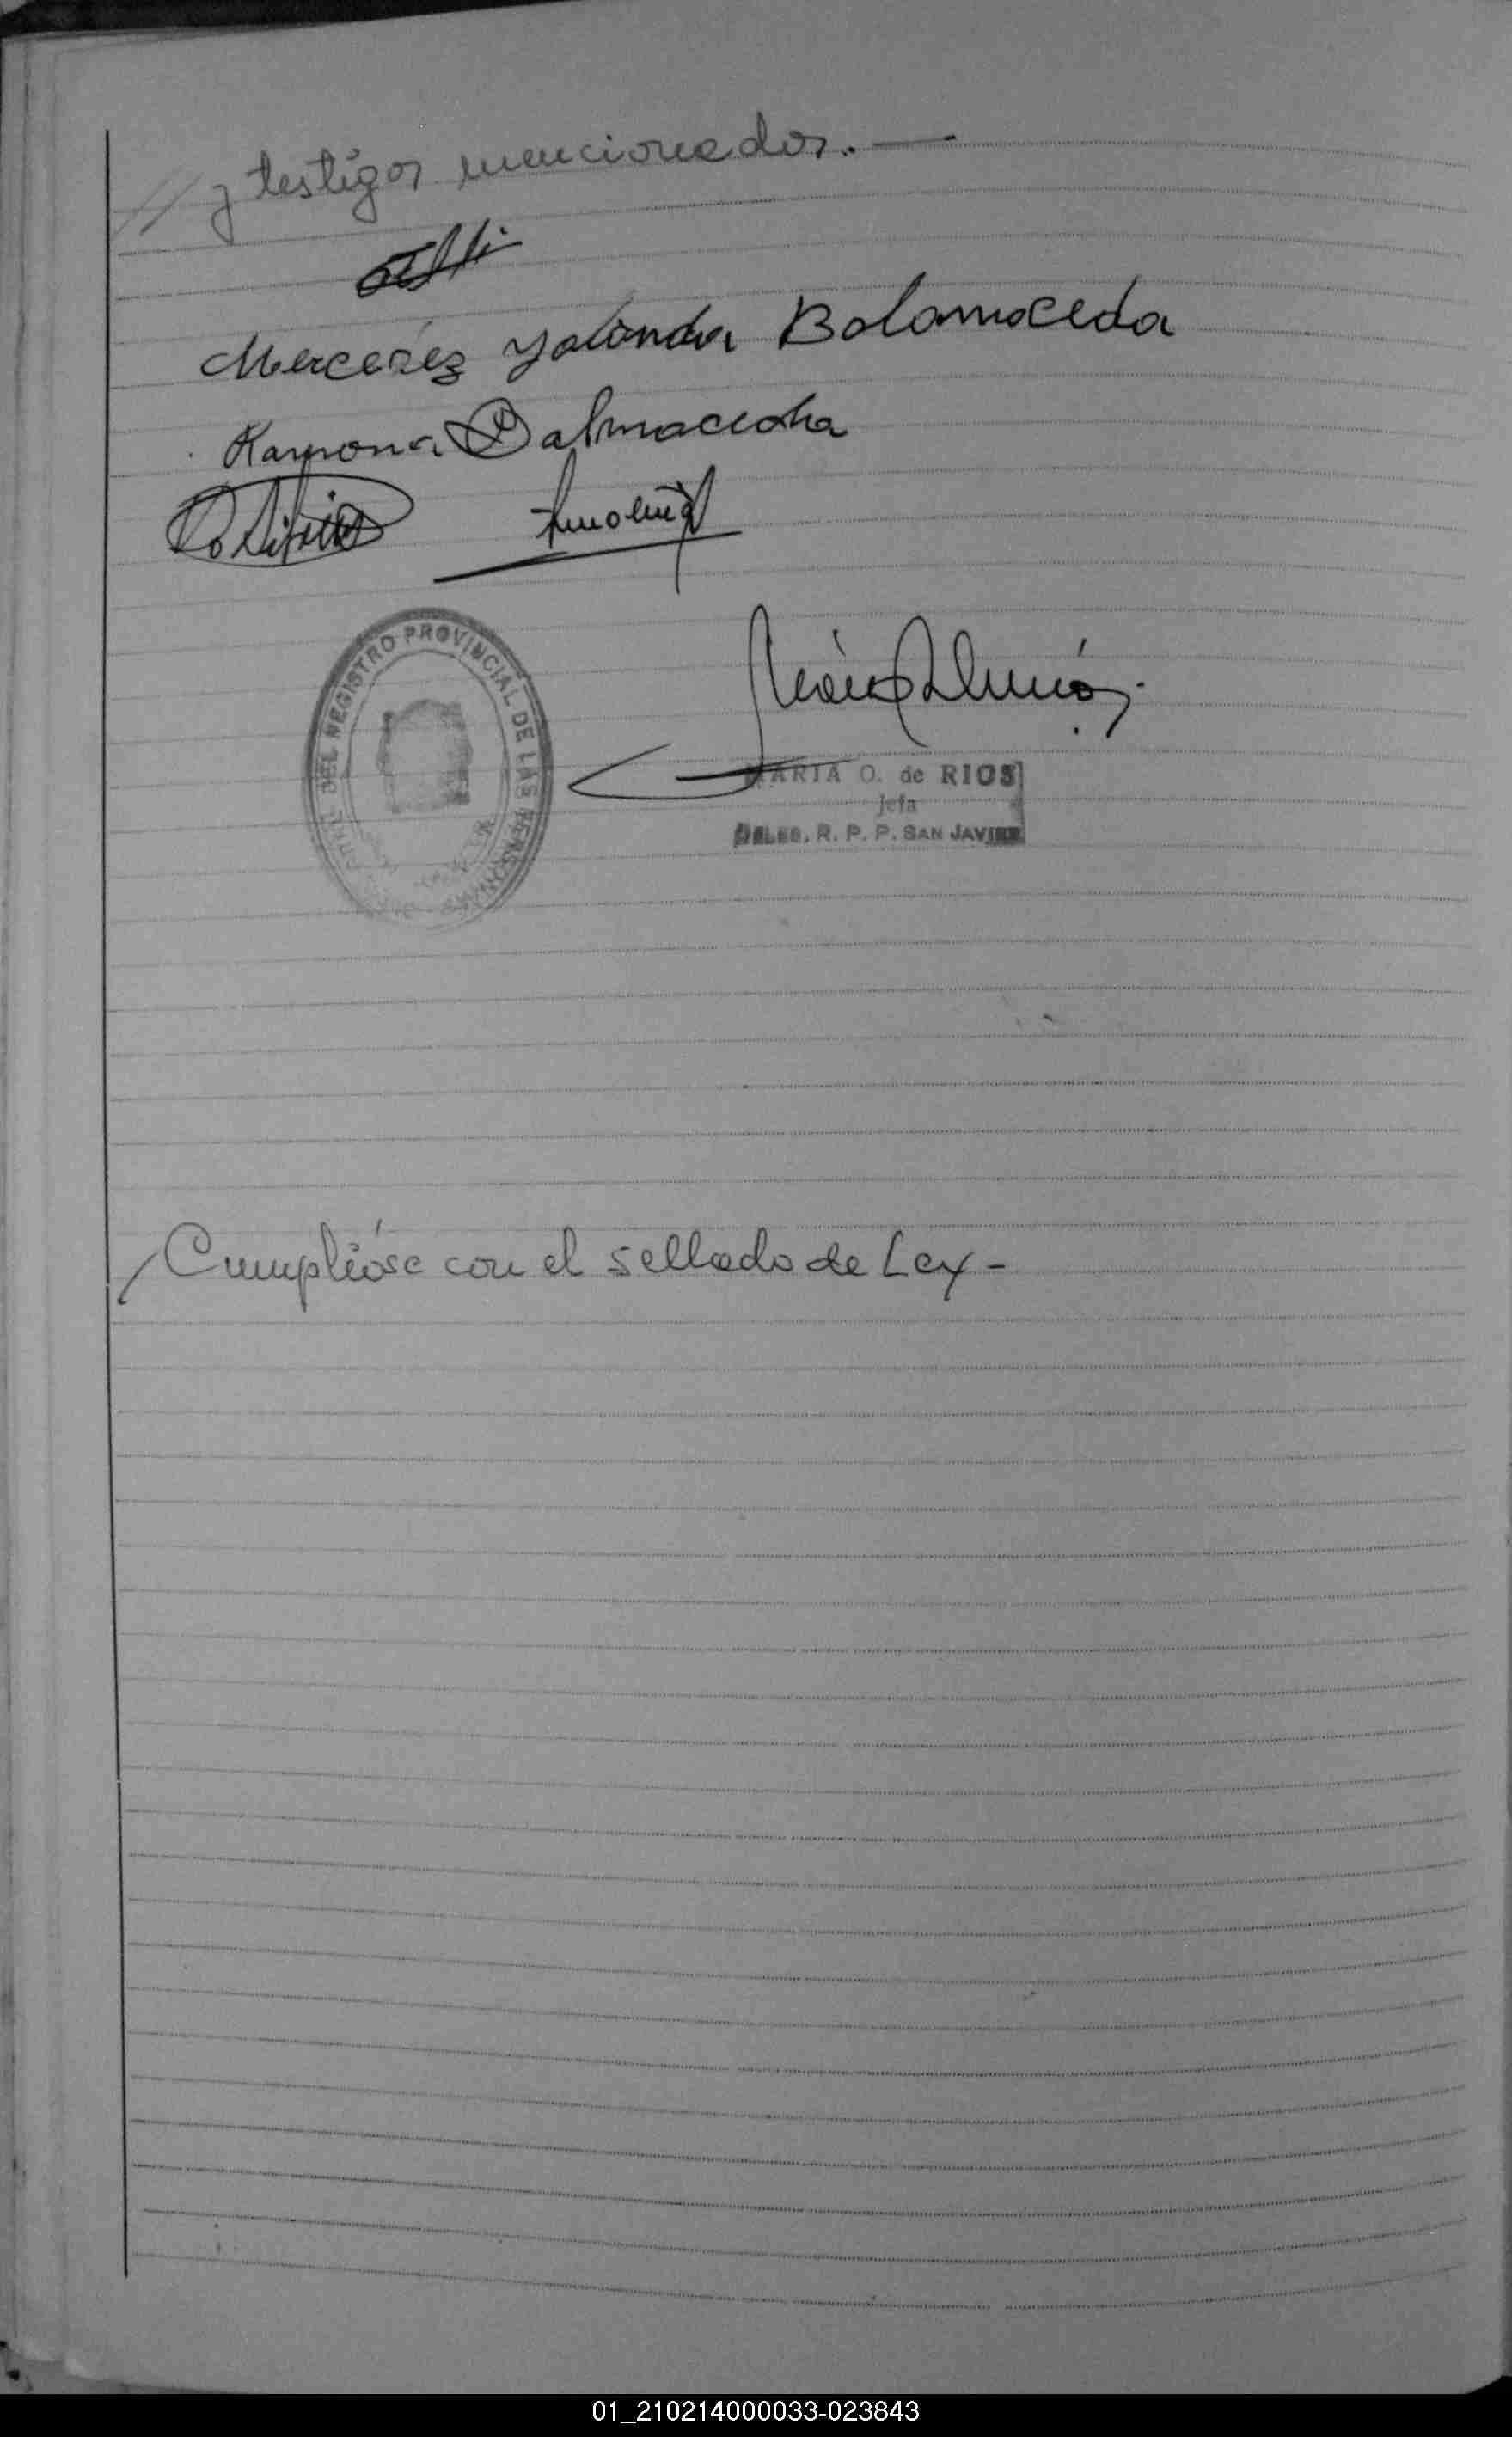 // y testigos mencionados. —
Mercedez Yolanda Balamaceda
Ramona Balmacedha
DEL REGISTRO PROVINCIAL DE LAS PERSONAS
MARIA O. de RIOS
Jefa
DELEG. R. P. P. SAN JAVIER
Cumplióse con el sellado de Ley -
01_210214000033-023843